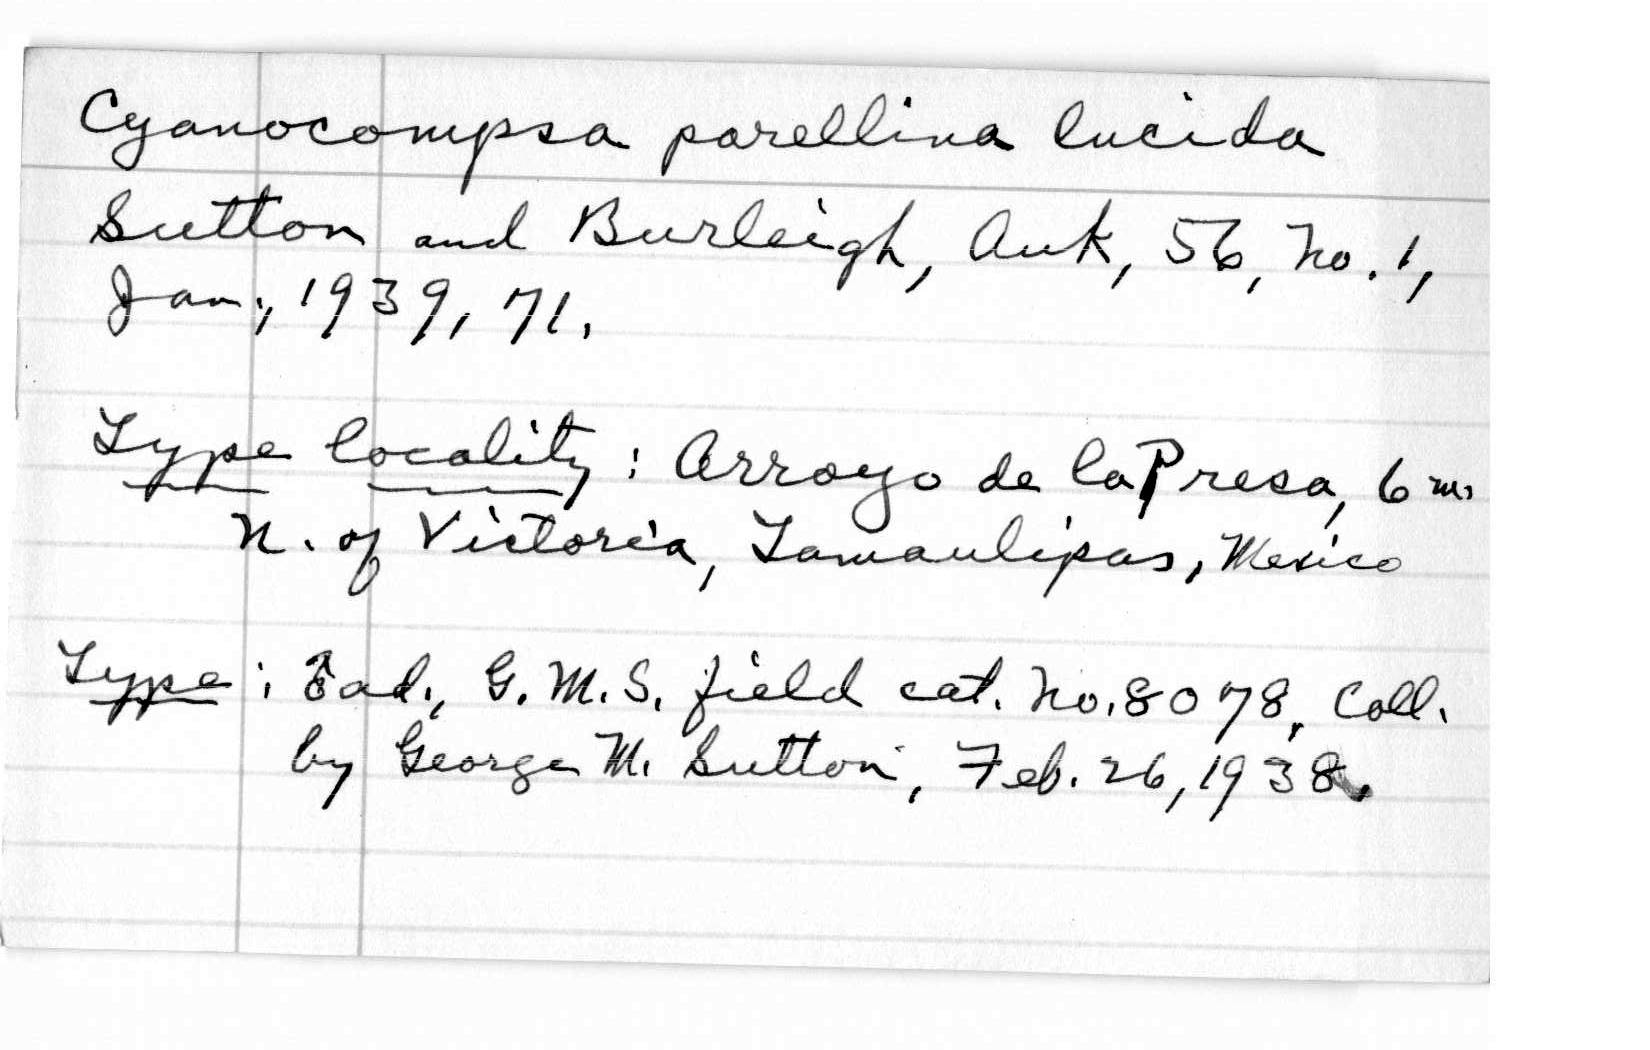 Cyanocompsa parellina lucida
Sutton and Burleigh, Auk, 56, No. 1,
Jan., 1939, 71.
Type locality: Arroyo de la Presa, 6 m.
N. of Victoria, Tamaulipas, Mexico
Type: ♂ ad., G. M. S. field cat. No. 8078. Coll.
by George M. Sutton, Feb. 26, 1938.